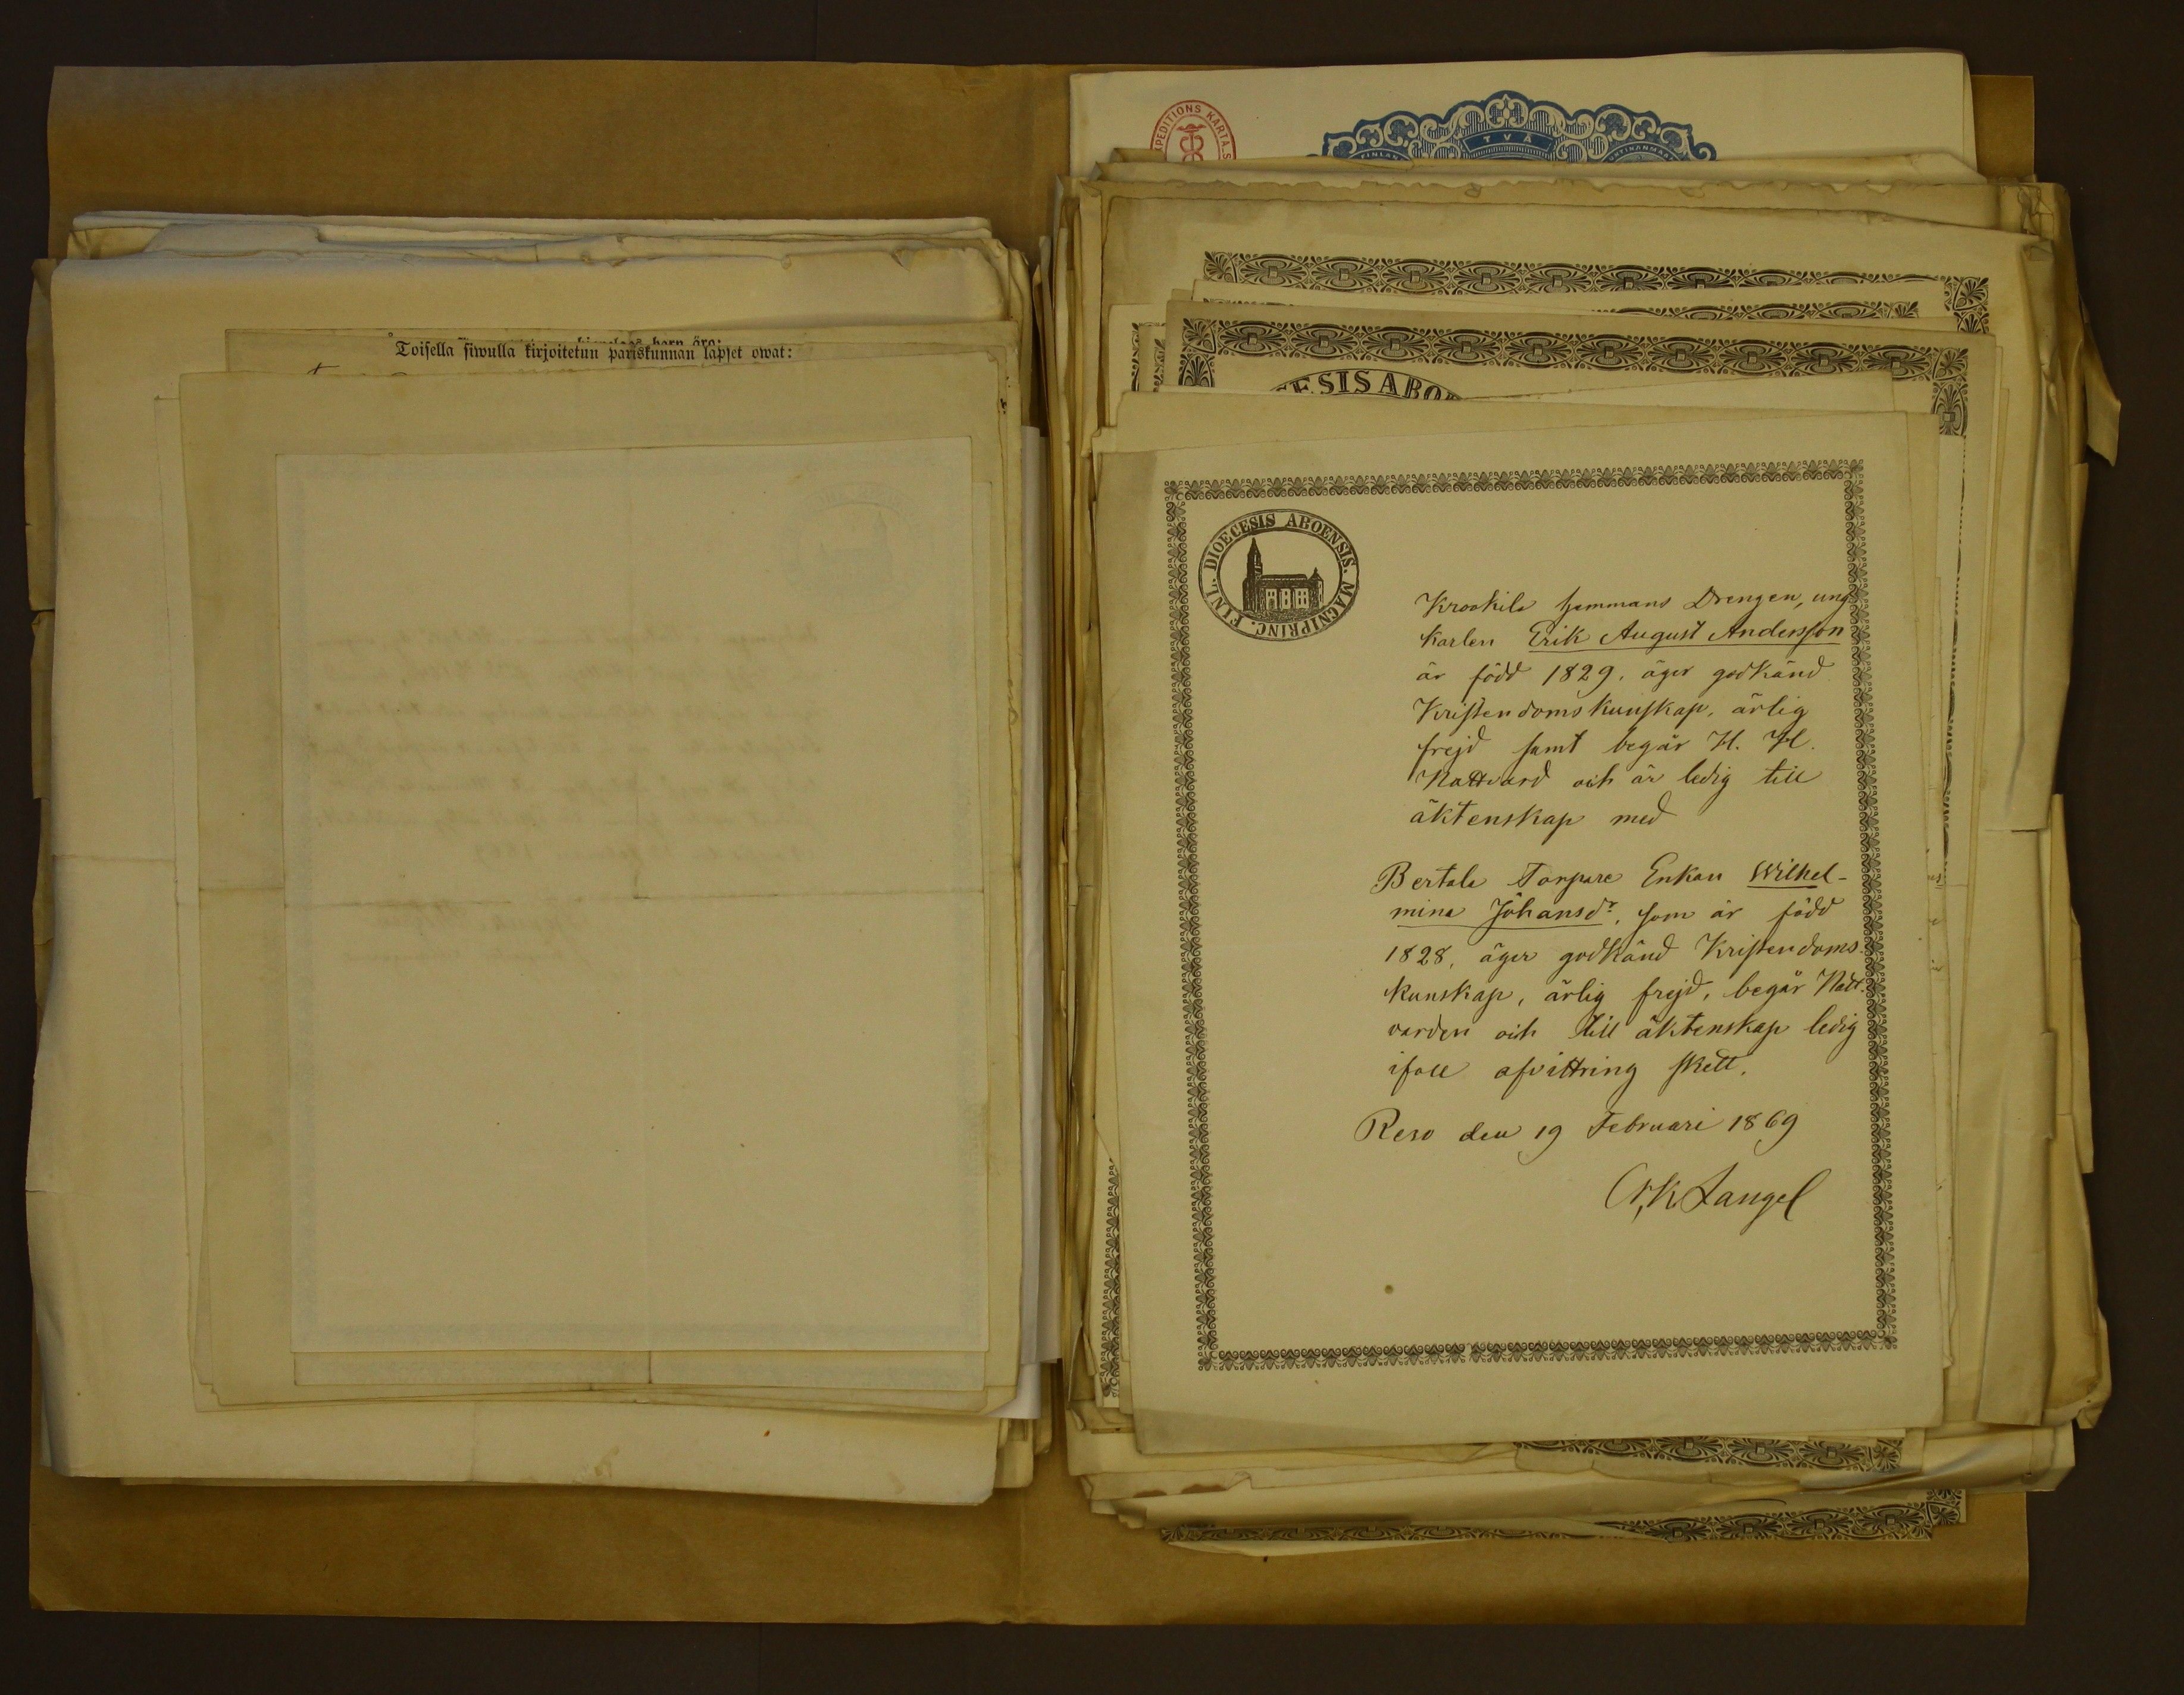 EXPEDITIONS KARTA.S
TVÅ
Toisella siwulla kirjoitetun pariskunnan lapset owat:
ESIS ABO
DIOECESIS ABOENSIS. MAGNIPRINC. FINL.
Krookila hemmans Drengen, ung
karlen Erik August Andersson
är född 1829, äger godkänd
Kristendomskunskap, ärlig
frejd samt begår H. H.
Nattvard och är ledig till
äktenskap med
Bertala Torpare Enkan Wilhel-
mina Johansdr, som är född
1828, äger godkänd Kristendoms
kunskap, ärlig frejd, begår Natt-
varden och till äktenskap ledig
ifall afvittring skett.
Reso den 19 Februari 1869
K Langel